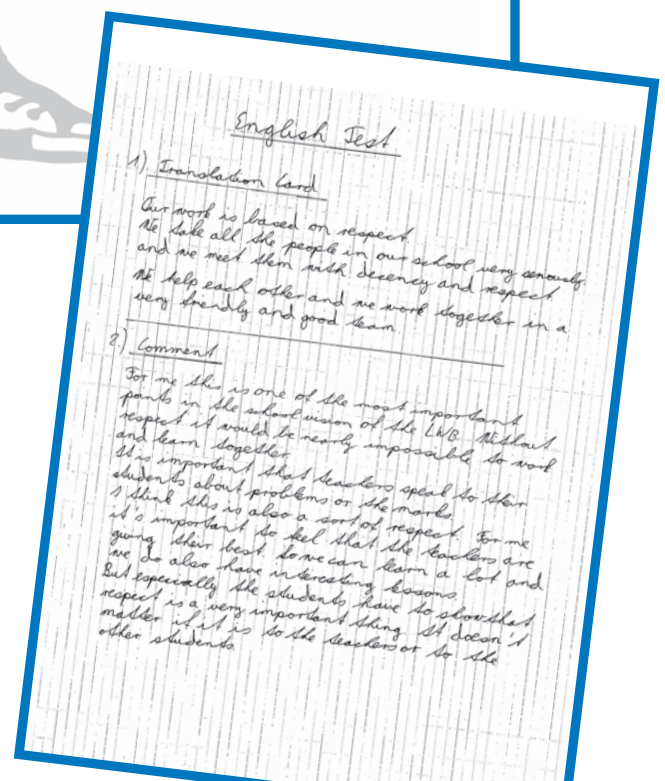 English Test
1) Translation Card
Our work is based on respect.
We take all the people in our school very seriously
and we meet them with decency and respect.
We help each other and we work together in a
very friendly and good team.
2.) Comment
For me this is one of the most important
points in the school vision of the LWB. Without
respect it would be nearly impossible to work
and learn together.
It is important that teachers speak to their
students about problems or the marks.
I think this is also a sort of respect. For me
it's important to feel that the teachers are
giving their best so we can learn a lot and
we do also have interesting lessons.
But especially the students have to show that
respect is a very important thing. It doesn't
matter if it is to the teachers or to the
other students.